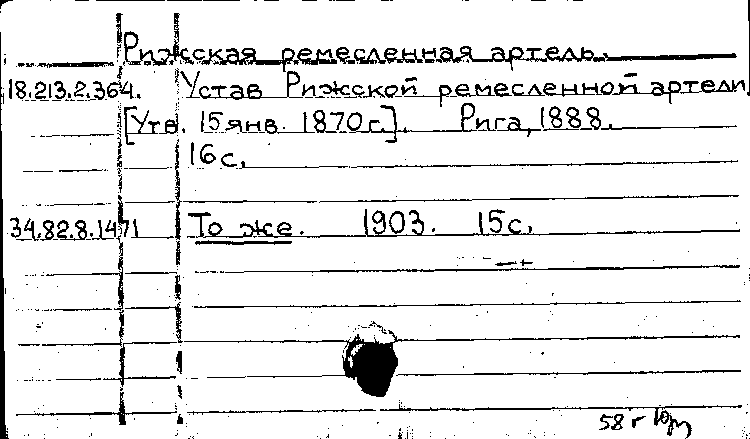 Рижская ремесленная артель.
18.213.2.364. Устав Рижской ремесленной артели.
[Утв. 15 янв. 1870 г.]. Рига, 1888.
16 с.
34.82.8.1471 То же. 1903. 15 с.
58 г